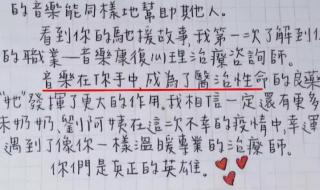 的音樂能同樣地幫助其他人。
看到你的馳援故事,我第一次了解到
的職業—音樂康復心理治療諮詢師。
音樂在你手中,成為了醫治性命的良藥
"她"發揮了更大的作用。我相信一定還有更多
朱奶奶、劉阿姨在這一次不幸的疫情中,幸運
遇到了像你一樣溫暖專業的治療師。
你們是真正的英雄。